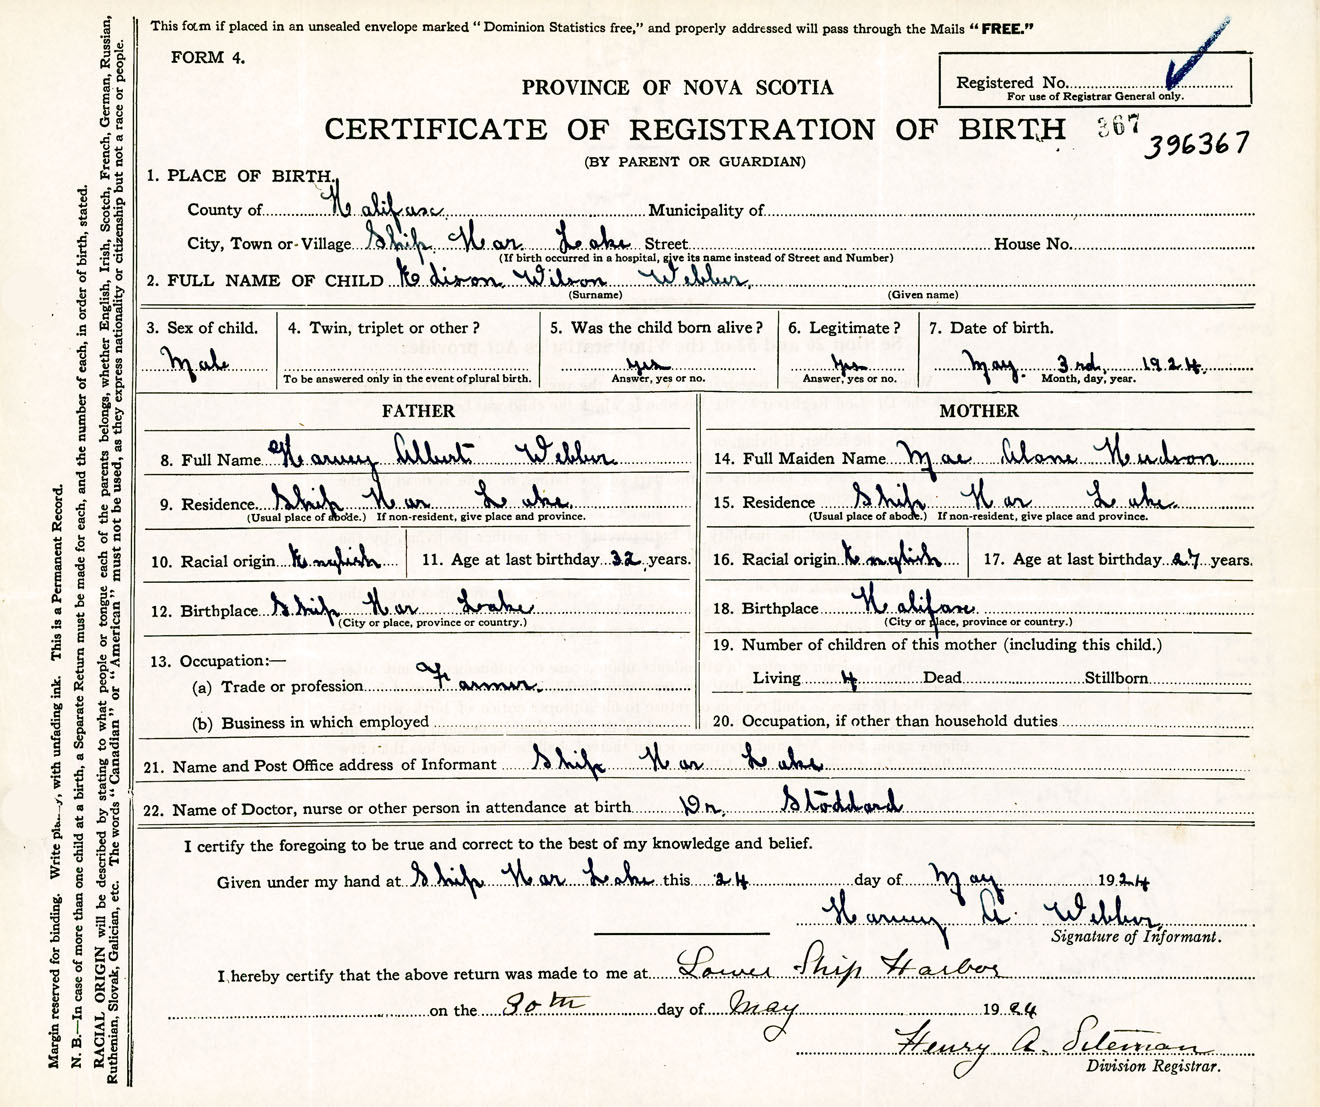 This form if placed in an unsealed envelope marked "Dominion Statistics free," and properly addressed will pass through the Mails "FREE."
FORM 4.
Registered No.
For use of Registrar General only.
PROVINCE OF NOVA SCOTIA
CERTIFICATE OF REGISTRATION OF BIRTH 367 396367
(BY PARENT OR GUARDIAN)
1. PLACE OF BIRTH.
County of Halifax Municipality of
City, Town or Village Ship Har Lake Street House No.
(If birth occurred in a hospital, give its name instead of Street and Number)
2. FULL NAME OF CHILD Edison Wilson Webber
(Surname) (Given name)
3. Sex of child. 4. Twin, triplet or other? 5. Was the child born alive? 6. Legitimate? 7. Date of birth.
Male yes yes May 3rd, 1924.
To be answered only in the event of plural birth. Answer, yes or no. Answer, yes or no. Month, day, year.
FATHER MOTHER
8. Full Name Harvey Albert Webber 14. Full Maiden Name Mae Hudson
9. Residence Ship Har Lake 15. Residence Ship Har Lake
(Usual place of abode.) If non-resident, give place and province. (Usual place of abode.) If non-resident, give place and province.
10. Racial origin English 11. Age at last birthday 32 years. 16. Racial origin English 17. Age at last birthday 27 years.
12. Birthplace Ship Har Lake 18. Birthplace Halifax
(City or place, province or country.) (City or place, province or country.)
13. Occupation:— 19. Number of children of this mother (including this child.)
(a) Trade or profession Farmer. Living 4 Dead Stillborn
(b) Business in which employed 20. Occupation, if other than household duties
21. Name and Post Office address of Informant Ship Har Lake
22. Name of Doctor, nurse or other person in attendance at birth Dr. Stoddard
I certify the foregoing to be true and correct to the best of my knowledge and belief.
Given under my hand at Ship Har Lake this 24 day of May 1924
Harvey A. Webber
Signature of Informant.
I hereby certify that the above return was made to me at Lower Ship Harbor
on the 30th day of May 1924
Henry A. Siteman
Division Registrar.
Margin reserved for binding. Write with unfading ink. This is a Permanent Record.
N. B.—In case of more than one child at a birth, a Separate Return must be made for each, and the number of each, in order of birth, stated.
RACIAL ORIGIN will be described by stating to what people or tongue each of the parents belongs, whether English, Irish, Scotch, French, German, Russian,
Ruthenian, Slovak, Galician, etc. The words "Canadian" or "American" must not be used, as they express nationality or citizenship but not a race or people.